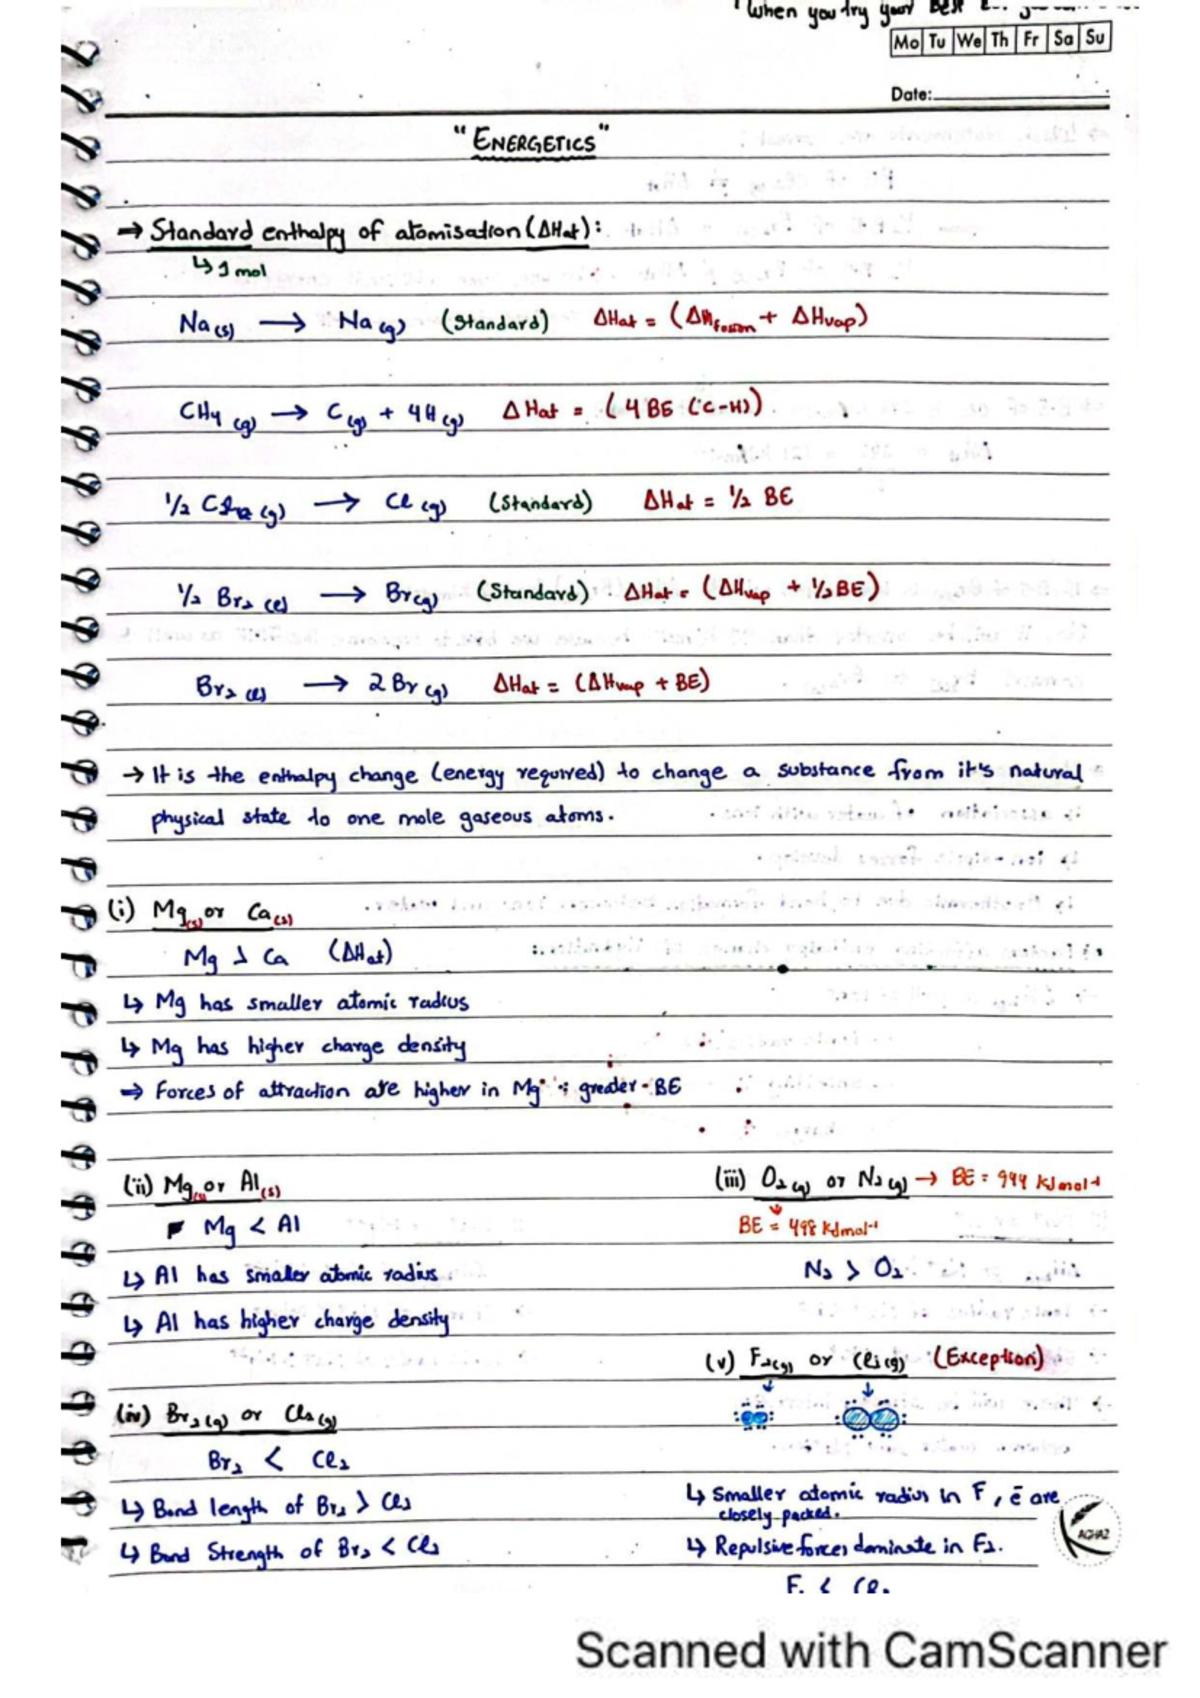 "When you try your Best
Mo Tu We Th Fr Sa Su
Date:
"ENERGETICS"
→ Standard enthalpy of atomisation (ΔHat):
↳ 1 mol
Na(s) → Na(g) (Standard) ΔHat = (ΔHfusion + ΔHvap)
CH4 (g) → C(g) + 4H(g) ΔHat = (4 BE (C-H))
1/2 Cl2 (g) → Cl (g) (Standard) ΔHat = 1/2 BE
1/2 Br2 (l) → Br(g) (Standard) ΔHat = (ΔHvap + 1/2 BE)
Br2 (l) → 2Br(g) ΔHat = (ΔHvap + BE)
→ It is the enthalpy change (energy required) to change a substance from it's natural
physical state to one mole gaseous atoms.
(i) Mg(s) or Ca(s)
Mg > Ca (ΔHat)
↳ Mg has smaller atomic radius
↳ Mg has higher charge density
⇒ Forces of attraction are higher in Mg ∴ greater BE
(ii) Mg(s) or Al(s)
Mg < Al
↳ Al has smaller atomic radius
↳ Al has higher charge density
(iii) O2(g) or N2(g) → BE = 944 kJmol-1
BE = 498 kJmol-1
N2 > O2
(iv) Br2(g) or Cl2(g)
Br2 < Cl2
↳ Bond length of Br2 > Cl2
↳ Bond Strength of Br2 < Cl2
(v) F2(g) or Cl2(g) (Exception)
↳ Smaller atomic radius in F, ē are
closely packed.
↳ Repulsive forces dominate in F2.
F2 < Cl2
AGHAZ
Scanned with CamScanner